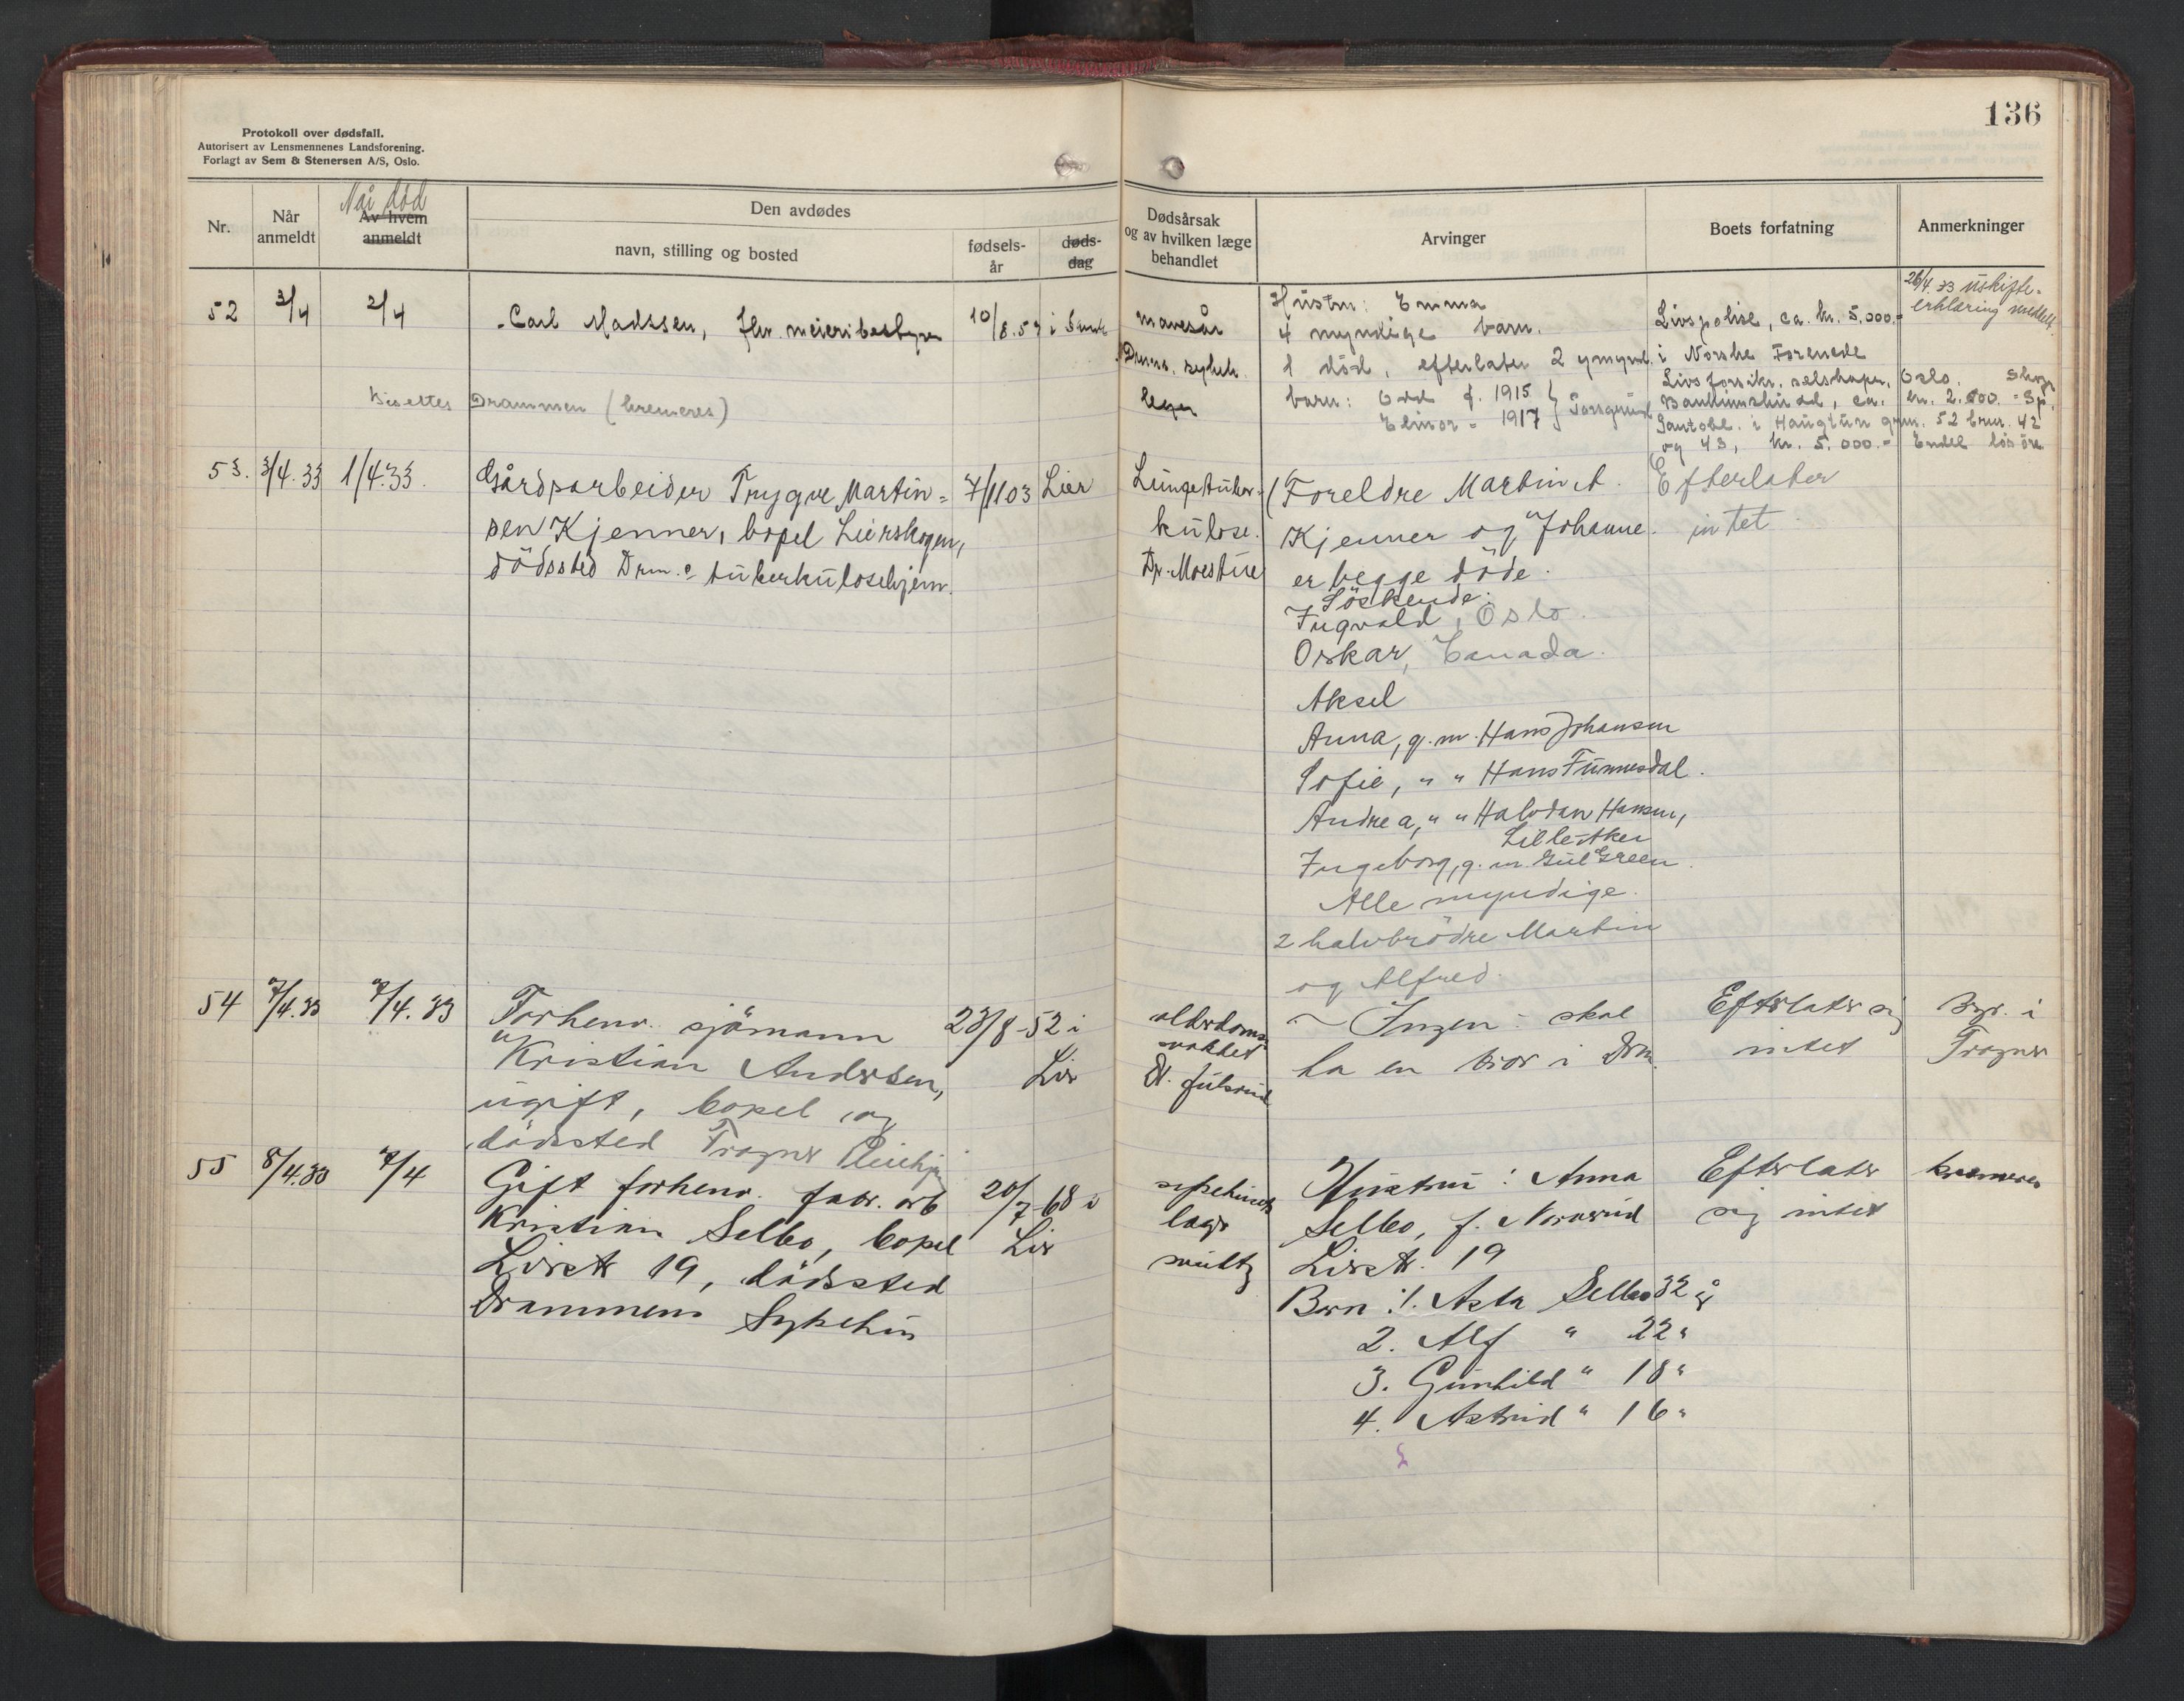 136
Protokoll over dødsfall.
Autorisert av Lensmennenes Landsforening.
Forlagt av Sem & Stenersen A/S, Oslo.
Nr.
Når anmeldt
Når død
Av hvem anmeldt
Den avdødes
navn, stilling og bosted
fødsels-år
døds-dag
Dødsårsak og av hvilken læge behandlet
Arvinger
Boets forfatning
Anmerkninger
52 3/4 2/4
Carl Madssen, fhv. meieribestyrer
10/8.57 i Sande
Bisettes Drammen (kremeres)
mavesår
Drms. sykeh.
leger
Hustru: Emma
4 myndige barn.
1 død, efterlater 2 umynd.
barn: Odd f. 1915
Elinor " 1917 } Porsgrund
Livspolise, ca. kr. 5.000.-
i Norske Forenede
Livsforsikr. selskaper, Oslo.
Bankinnskudd, ca. kr. 2.000.-
Pantobl. i Haugtun grnr. 52 brnr. 42
og 43, kr. 5.000.- Endel løsøre
26/4.33 uskifte-
erklæring meddelt
53. 3/4.33 1/4.33.
Gårdsarbeider Trygve Martin-
sen Kjenner, bopel Lierskogen,
dödssted Drm.s tuberkulosehjem.
7/11 03 Lier
Lungetuber-
kulose.
Dr. Moestue
Foreldre Martin A.
Kjenner og Johanne
er begge döde.
Söskende:
Ingvald, Oslo.
Oskar, Canada.
Aksel
Anna, g.m. Hans Johansen
Sofie, " " Hans Tünnesdal.
Andrea, " " Halvdan Hansen,
Lilleaker
Ingeborg, g.m. Gul Green.
Alle myndige.
2 halvbrödre Martin
og Alfred.
Efterlater
intet.
54 7/4.33 7/4.33
Forhenv. sjömann
Kristian Andersen,
ugift, bopel og
dödssted Frogner Pleiehj.
23/8-52 i
Lier
alderdoms-
svakhet
Dr. Julsrud
Ingen - skal
ha en bror i Drm.
Efterlater sig
intet
Bgr. i
Frogner
55 8/4.33 7/4
Gift forhenv. fabr. arb
Kristian Selbo, bopel
Lierstr 19, dödssted
Drammens Sykehus
20/7-68 i
Lier
sykehus
læge
Hustru: Anna
Selbo, f. Nornerud
Lierstr. 19
Barn: 1. Asta Selbo 32 år
2. Alf " 22 "
3. Gunhild " 18 "
4. Astrid " 16 "
Efterlater
sig intet
kremeres